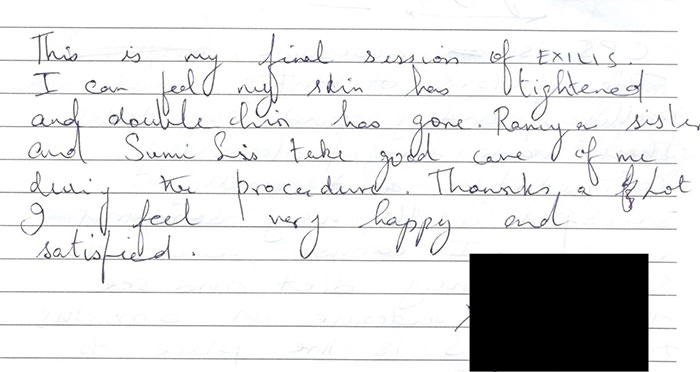 This is my final session of EXILIS.
I can feel my skin has tightened
and double chin has gone. Ramya sister
and Sumi Sis take good care of me
during the procedure. Thanks a Lot
I feel very happy and
satisfied.